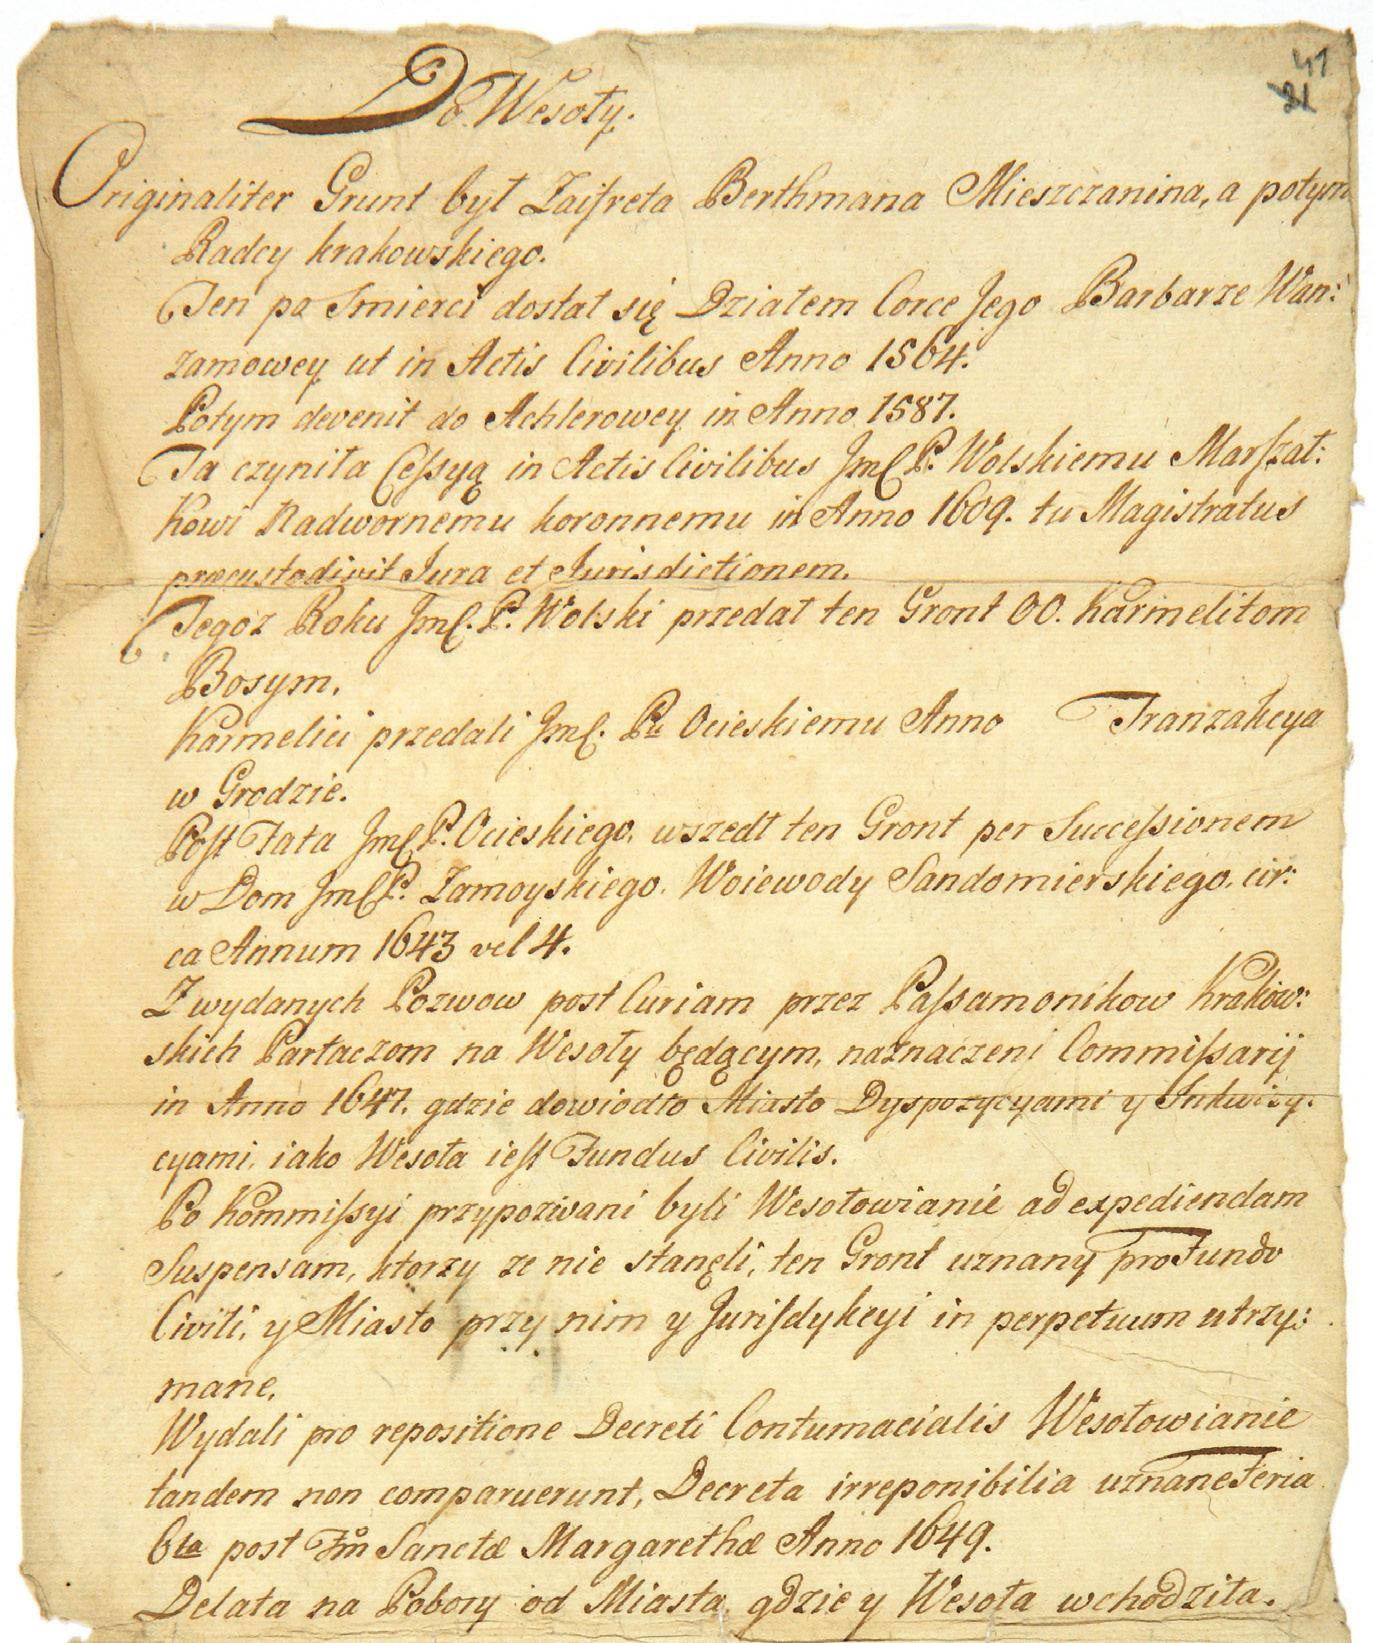 41
21
Do Wesoły.
Originaliter Grunt był Zaifreta Berthmana Mieszczanina, a potym
Radcy krakowskiego.
Ten po Smierci dostał się Działem Corce Jego Barbarze Wan:
zamowey ut in Actis Civilibus Anno 1564.
Potym devenit do Achlerowey in Anno 1587.
Ta czyniła Ceſsyą in Actis Civilibus Jmć P. Wolskiemu Marſzał:
kowi Nadwornemu koronnemu in Anno 1609. tu Magistratus
præcustodivit Jura et Jurisdictionem.
Tegoz Roku Jmć. P. Wolski przedał ten Gront OO. Karmelitom
Bosym.
Karmelici przedali Jmć. Pu Ocieskiemu Anno Tranzakcya
w Grodzie.
Poſt Fata Jmć P. Ocieskiego, wszedł ten Gront per Succeſsionem
w Dom Jmć P. Zamoyskiego. Woiewody Sandomierskiego. cir:
ca Annum 1643 vel 4.
Z wydanych Pozwow post Curiam przez Paſsamonikow Krakow:
skich Partaczom na Wesoły będącym, naznaczeni Commiſsarij
in Anno 1647. gdzie dowiodło Miasto Dyspozycyami y Inkwizy:
cyami, iako Wesoła ieſt Fundus Civilis.
Po Kommiſsyi przypozwani byli Wesołowianie ad expediendam
Suspensam, ktorzy ze nie stanęli, ten Gront uznany pro Fundo
Civili, y Miasto przy nim y Juriſdykcyi in perpetuum utrzy:
mane.
Wydali pro repositione Decreti Contumacialis Wesołowianie
tandem non comparuerunt, Decreta irreponibilia uznane Feria
6ta post Fm Sanctæ Margarethæ Anno 1649.
Delata na Pobory od Miasta, gdzie y Wesoła wchodziła.